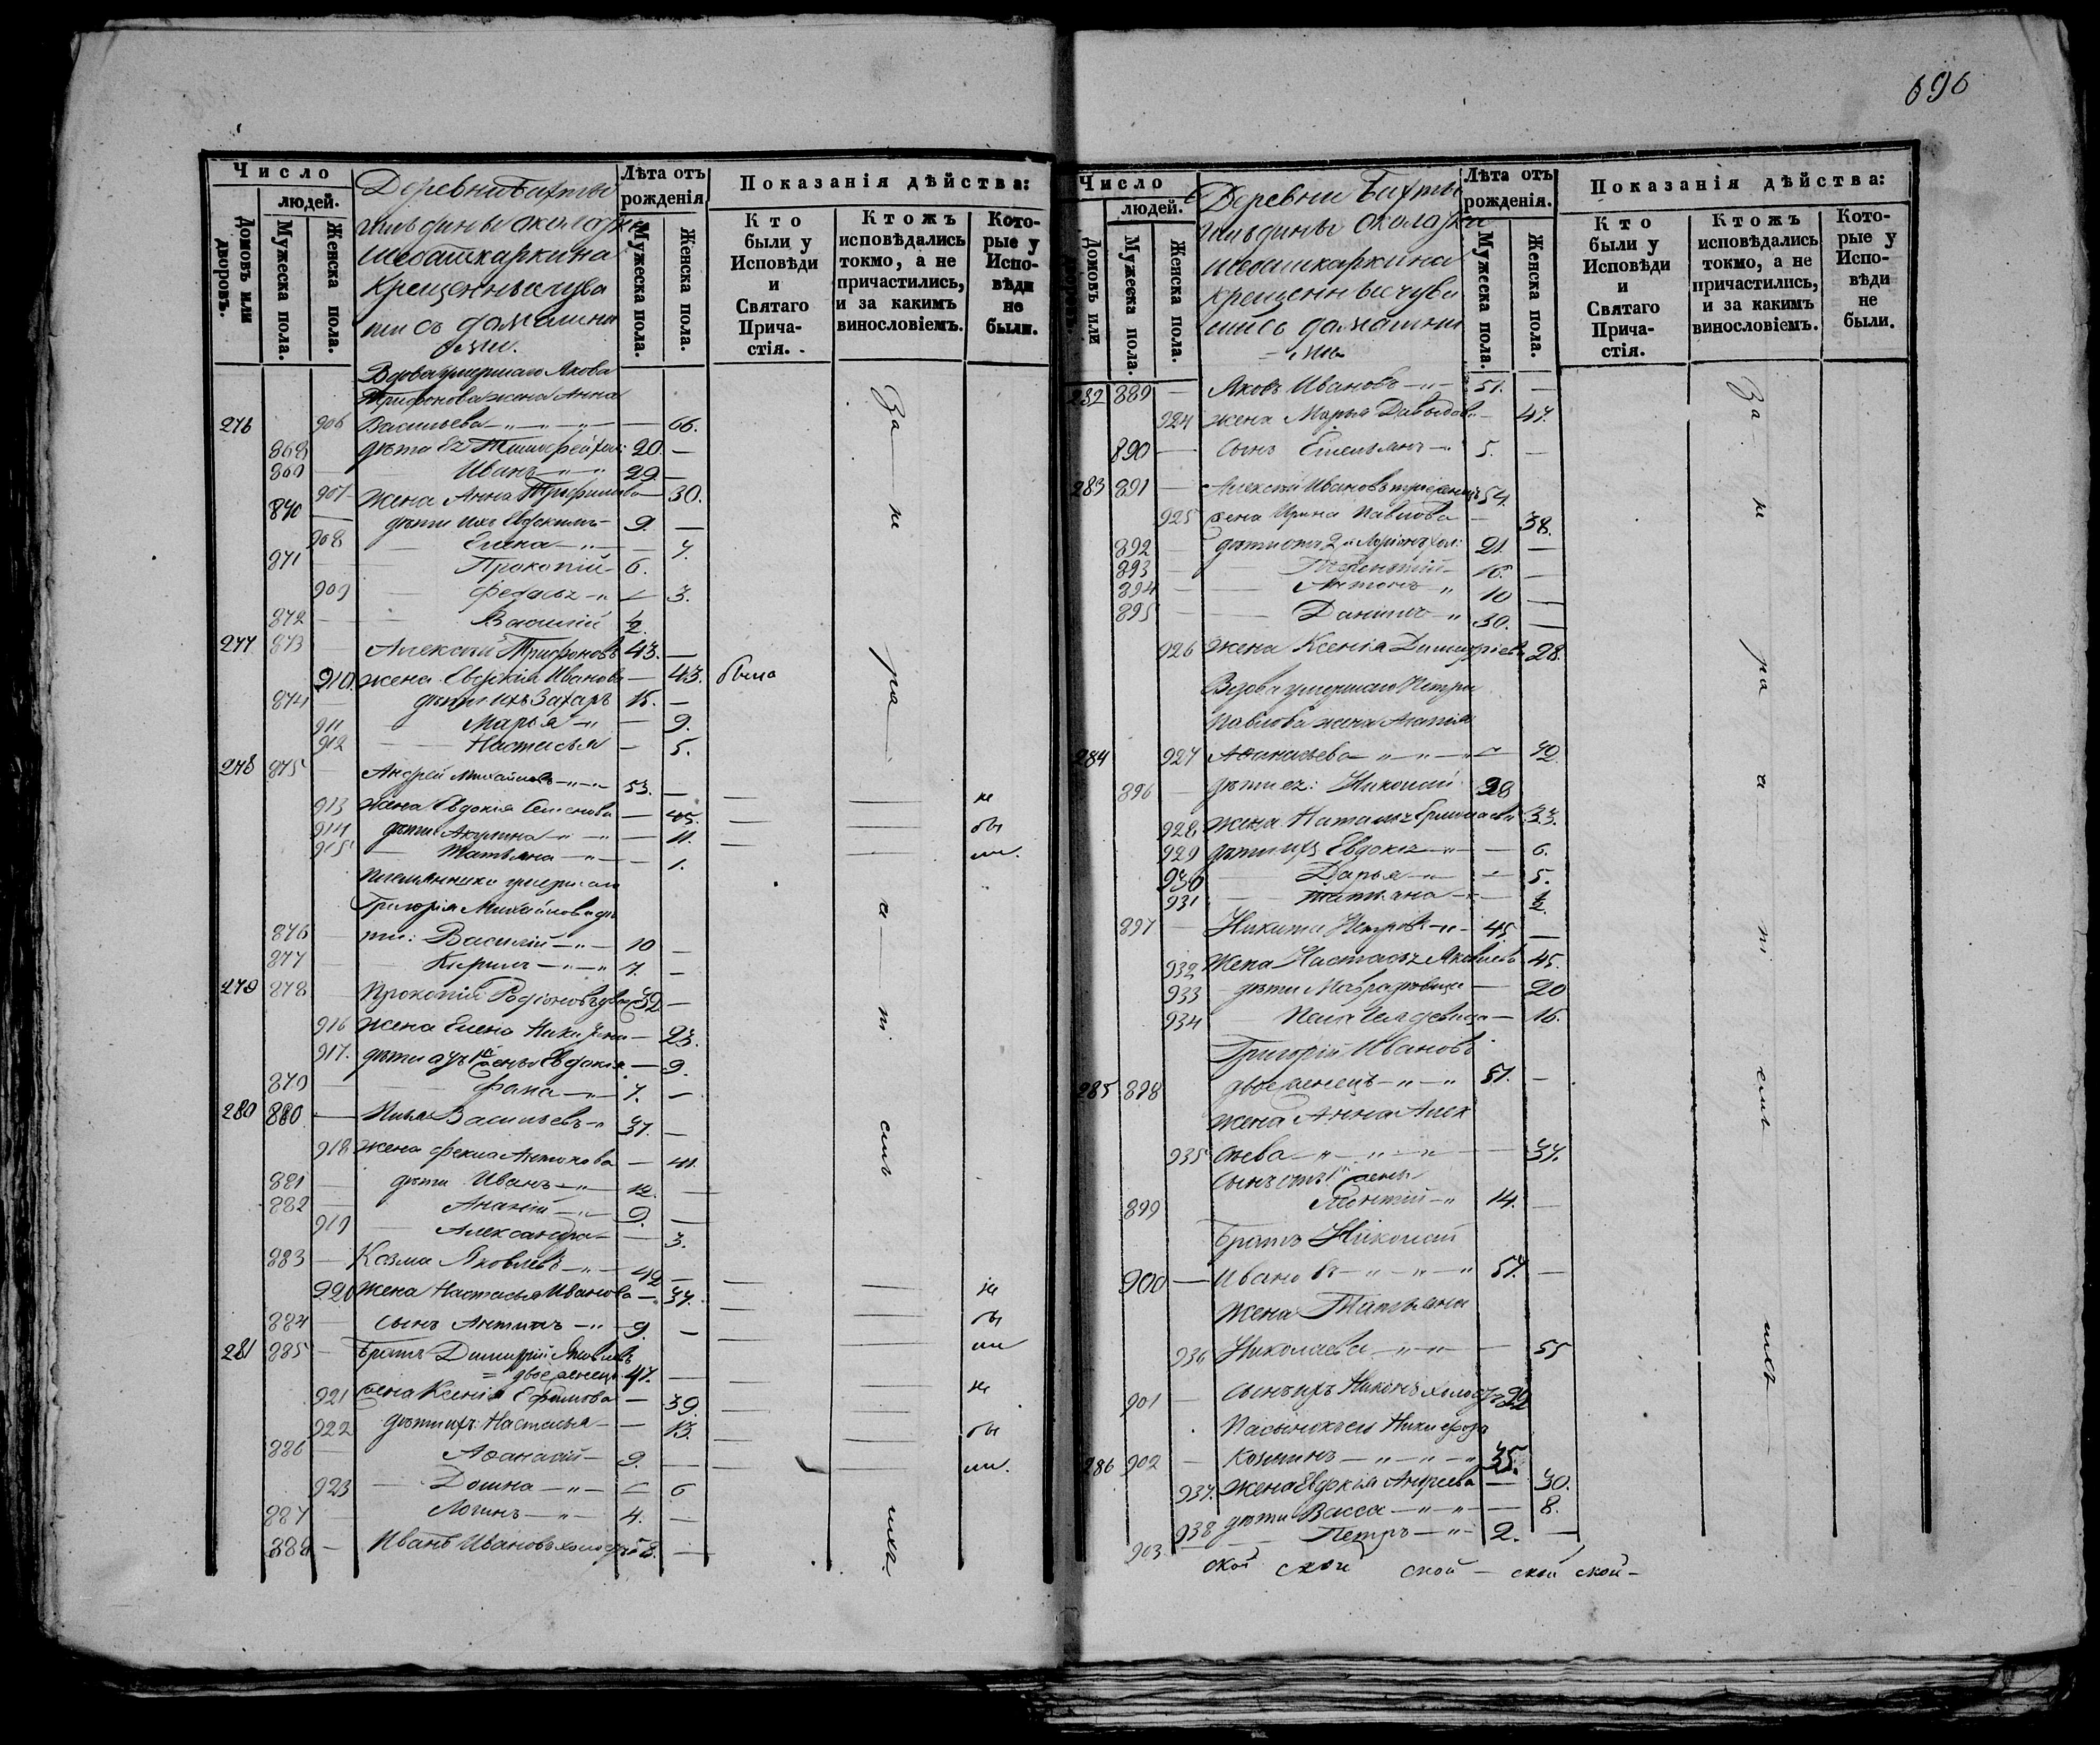 Число
людей.
Домовъ или дворовъ.
Мужеска пола.
Женска пола.
Деревни Бахты
гильдины околодка
Шебашкаркина
Крещенныя чува
ши съ домашни
ми.
Лѣта отъ рожденія
Мужеска пола.
Женска пола.
Показанія дѣйства:
Кто были у Исповѣди и Святаго Причастія.
Ктожъ исповѣдались токмо, а не причастились, и за какимъ винословіемъ.
Которые у Исповѣди не были.
Вдова умершаго Якова
Трифонова жена Анна
276 906 Васильева 66.
868 дѣти ея Тимофей хол: 20. —
869 Иванъ 29. —
907 жена Анна Трофимова — 30.
870 дѣти ихъ Евдокимъ 9. —
908 Елена — 7.
871 Прокопій 6.
909 Федосья — 3.
872 Василій ½
277 873 Алексѣй Трифоновъ 43. —
910. жена Евдокія Иванова — 43. была
874 дѣти ихъ Захаръ 15. —
911 Марья — 9.
912 Настасья — 5.
278 875 Андрей Михайловъ 53. —
913 жена Евдокія Семенова — 45. не
914 дѣти Акулина — 11. бы
915 Татьяна — 1. ли.
Племянники умершаго
Григорія Михайлова дѣ
876 ти: Василій 10 —
877 Кирилъ 7. —
279 878 Прокопій Родіоновъ 32. —
916 жена Елена — 23.
917. дѣти Евдокія — 9.
879 Фома 7. —
280 880 Илья Васильевъ 37. —
918 жена Фекла Антонова — 41.
881 дѣти Иванъ 12. —
882 Ананій 9. —
919 Александра — 3.
883 Козма Яковлевъ 42 —
920 жена Настасья Иванова — 37. не
884 сынъ Антипъ 9. — бы
281 885 Братъ Димитрій Яковлевъ ли
двоеженецъ 47. —
921 жена Ксенія Ефимова — 39 не
922 дѣти ихъ: Настасья — 13. бы
886 Афанасій 9. — ли.
923 Домна — 6
887 Логинъ 4. —
888 Иванъ Ивановъ холостъ 58. —
За не ра ч т ель ихъ
696
Число
людей.
Домовъ или
Мужеска пола.
Женска пола.
Деревни Бахты
гильдины околодка
Шебашкаркина
крещенныя чува
ши съ домашни
ми
Лѣта отъ рожденія.
Мужеска пола.
Женска пола.
Показанія дѣйства:
Кто были у Исповѣди и Святаго Причастія.
Ктожъ исповѣдались токмо, а не причастились, и за какимъ винословіемъ.
Которые у Исповѣди не были.
282 889 — Яковъ Ивановъ 51. —
924 жена Марья Давыдова — 47.
890 — Сынъ Емельянъ 5. —
283 891 — Алексѣй Ивановъ троеженецъ 54.
925 жена Ирина Павлова — 38.
892 дѣти отъ 2й Ларіонъ хол: 21. —
893 Терентій 16. —
894 Антонъ 10 —
895 Даніилъ 30. —
926 жена Ксенія Димитріева 28.
Вдова умершаго Петра
Павлова жена
284 927 Афанасьева 72
896 дѣти ея: Николай 38
928 жена 33.
929 дѣти ихъ Евдокія — 6.
930 Дарья — 5.
931 Татьяна — ½
897 Никита Петровъ 45. —
932 Жена Настасья Яковлева 45.
933 дѣти Мавра дѣвица — 20
934 Пелагея дѣвица — 16.
Григорій Ивановъ
285 898 двоеженецъ 51. —
жена Анна Алек
935 сѣева — 37.
сынъ отъ 1й жены
899 Леонтій 14. —
Братъ Николай
900 — Ивановъ 57. —
Жена Татьяна
936 Николаева — 55
901 сынъ ихъ Никонъ холостъ 22
Пасынокъ его Никифоръ
286 902 Козминъ 35.
937. жена Евдокія Андреева — 30.
938 дѣти Васса — 8.
903 Петръ 2. —
За не ра ч т ель ихъ
ской ской ской — ской ской —